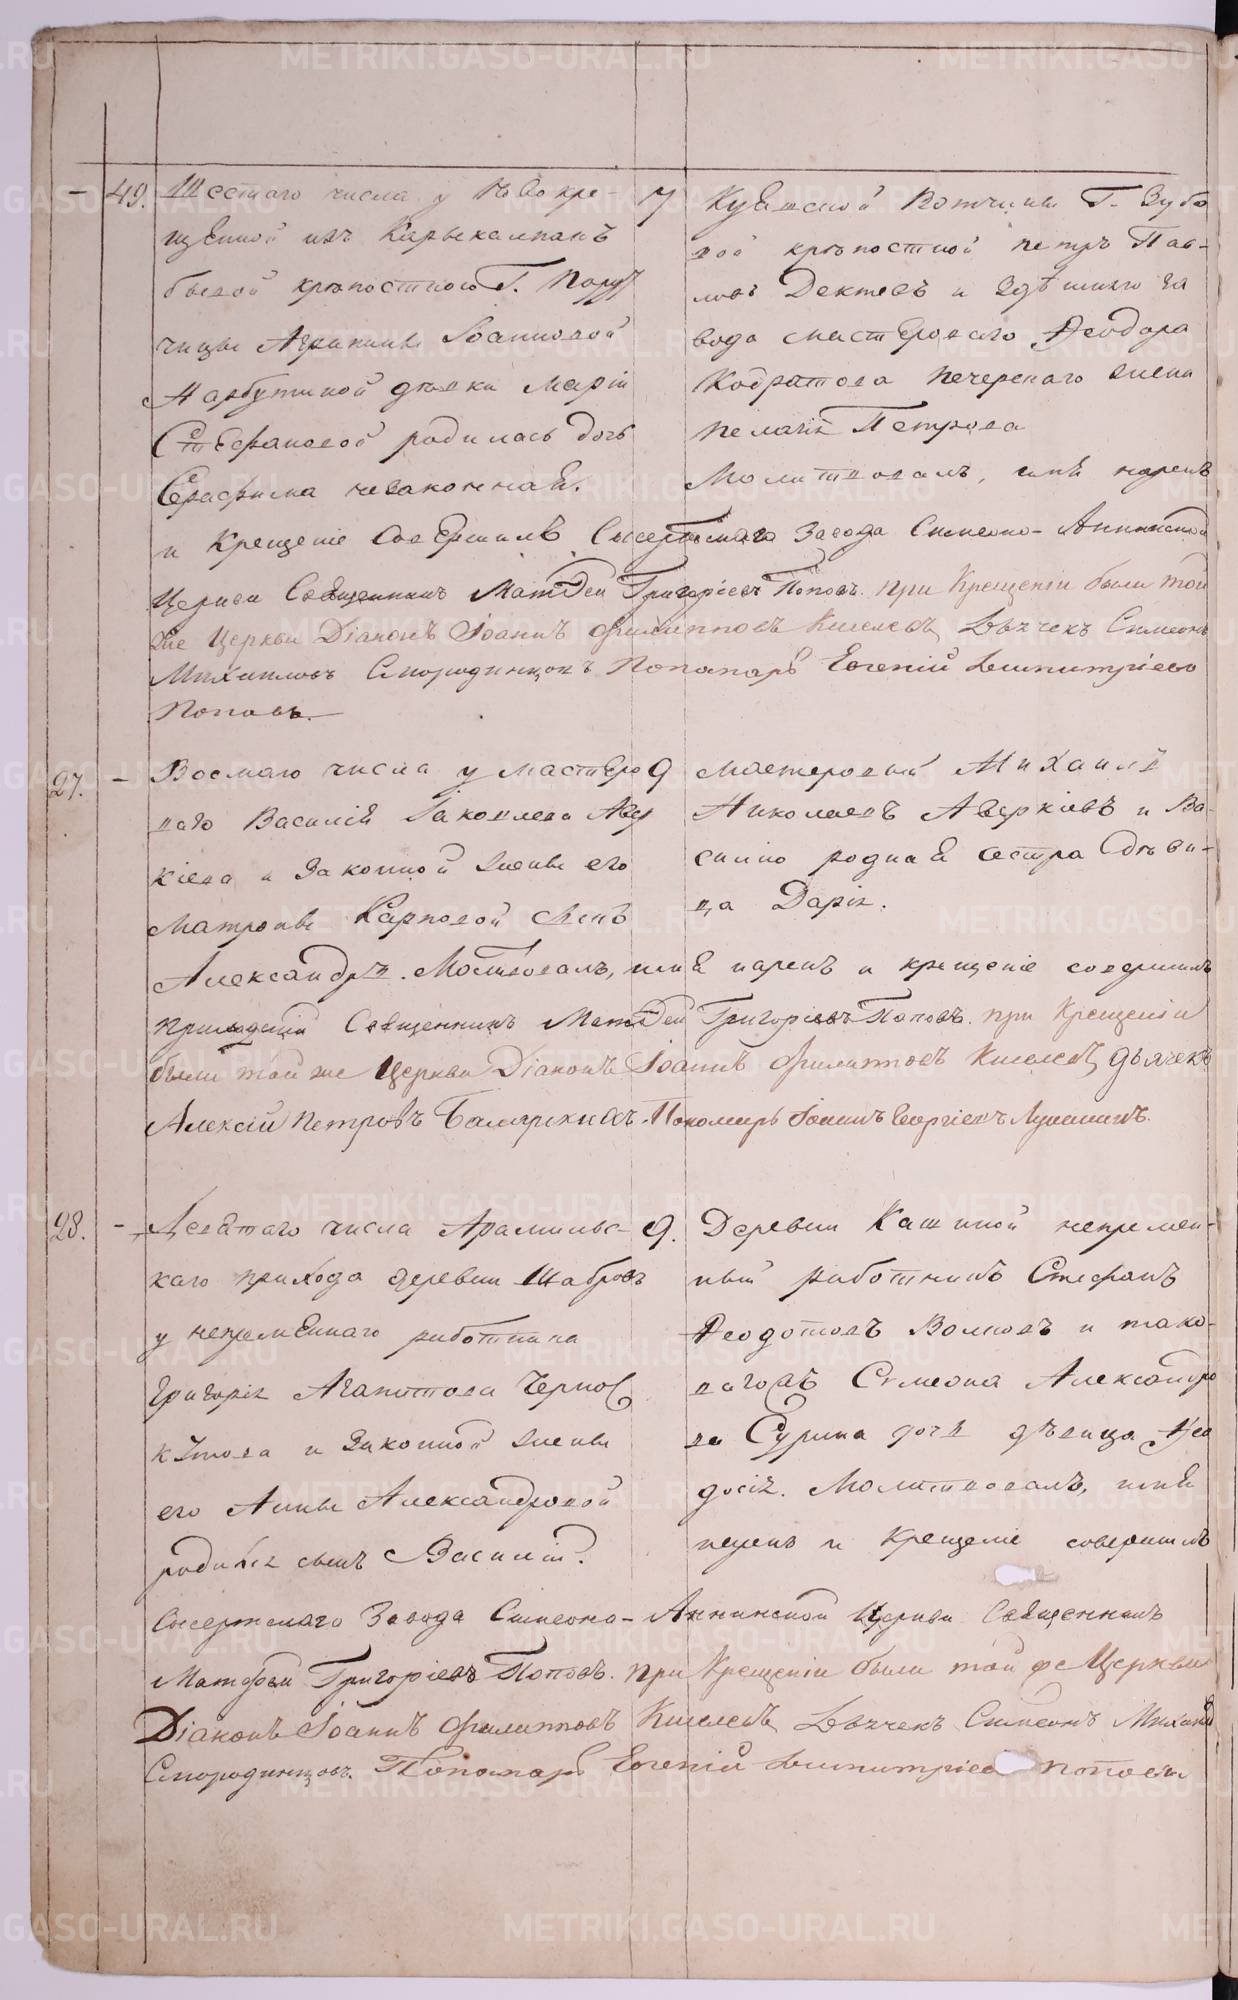 49. Шестаго числа у Новокре-
щенной изъ Каракалпакъ
бывой крѣпостною Г. Пору
чицы Агрипины Іоанновой
Нарбутиной дѣвки Маріи
Стефановой родилась дочь
Серафима незаконная.
7 Г. Зубо
вой крѣпостной Петръ Пав-
ловъ Дектевъ и Здѣшняго за
вода мастероваго Ѳеодора
Кодратова Печерскаго жена
Пелагія Петрова
Молитвовалъ, имя нарекъ
и Крещеніе Совершилъ Сысертскаго Завода Симеоно-Аннинской
Церкви Священникъ Матѳей Григоріевъ Поповъ. При Крещеніи были той
же Церкви Діаконъ Іоаннъ Филипповъ Киселевъ, Дьячекъ Симеонъ
Михаиловъ Смородинцовъ Понамарь Евгеній Димитріевъ
Поповъ.
27. Восмаго числа у мастеро
ваго Василія Іаковлева Авер
кіева и Законной жены его
Матроны Карповой Сынъ
Александръ.
9 Мастеровый Михаилъ
Николаевъ Аверкіевъ и Ва-
силію родная сестра Дѣви-
ца Дарія.
Молитвовалъ, имя нарекъ и крещеніе совершилъ
Священникъ Матѳей Григоріевъ Поповъ. При Крещеніи
были той же Церкви Діаконъ Іоаннъ Филипповъ Киселевъ, дьячекъ
Алексій Петровъ Пономарь Іоаннъ Георгіевъ
28. Девятаго числа Арамильс-
каго прихода деревни Шабровъ
у непремѣннаго работника
Григорія Агапитова Чернос
кутова и Законной жены
его Анны Александровой
родился сынъ Василій.
9. Деревни Кашиной непремен-
ный работникъ Стефанъ
Ѳеодотовъ Волковъ и тако-
ваговъ Симеона Александро
ва Сурина дочь дѣвица Ѳео
досія. Молитвовалъ, имя
нарекъ и Крещеніе совершилъ
Сысертскаго Завода Симеоно-Аннинской Церкви Священникъ
Матѳей Григоріевъ Поповъ. При Крещеніи были той же Церкви
Діаконъ Іоаннъ Филипповъ Киселевъ, Дьячекъ Симеонъ Михаил
Смородинцовъ. Понамарь Евгеній Димитріев Поповъ
METRIKI.GASO-URAL.RU